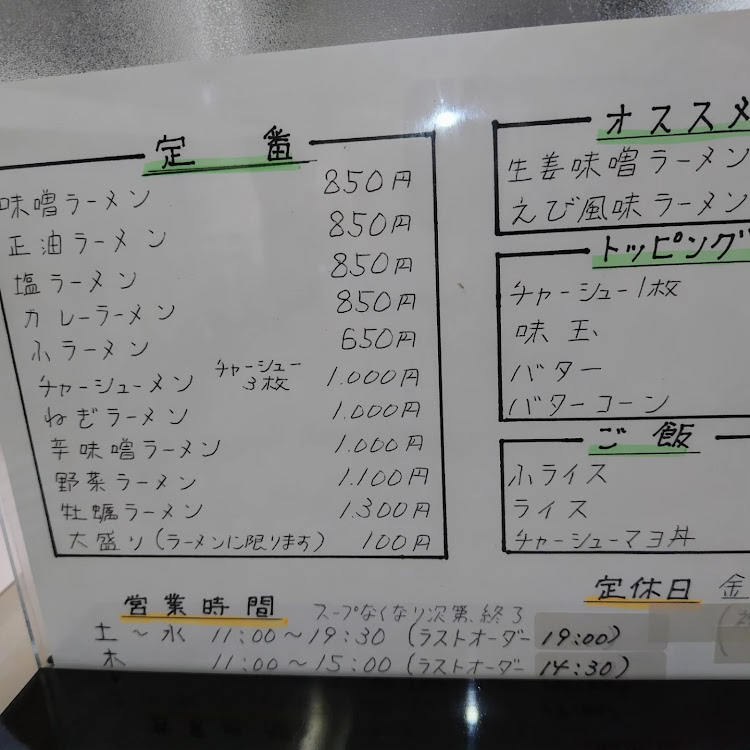 定番
味噌ラーメン 850円
正油ラーメン 850円
塩ラーメン 850円
カレーラーメン 850円
ふラーメン 650円
チャーシューメン チャーシュー3枚 1.000円
ねぎラーメン 1.000円
辛味噌ラーメン 1.000円
野菜ラーメン 1.100円
牡蠣ラーメン 1.300円
大盛り(ラーメンに限ります) 100円
オススメ
生姜味噌ラーメン
えび風味ラーメン
トッピング
チャーシュー1枚
味玉
バター
バターコーン
ご飯
ふライス
ライス
チャーシューマヨ丼
営業時間 スープなくなり次第、終了
土~水 11:00~19:30 (ラストオーダー 19:00)
木 11:00~15:00 (ラストオーダー 14:30)
定休日 金